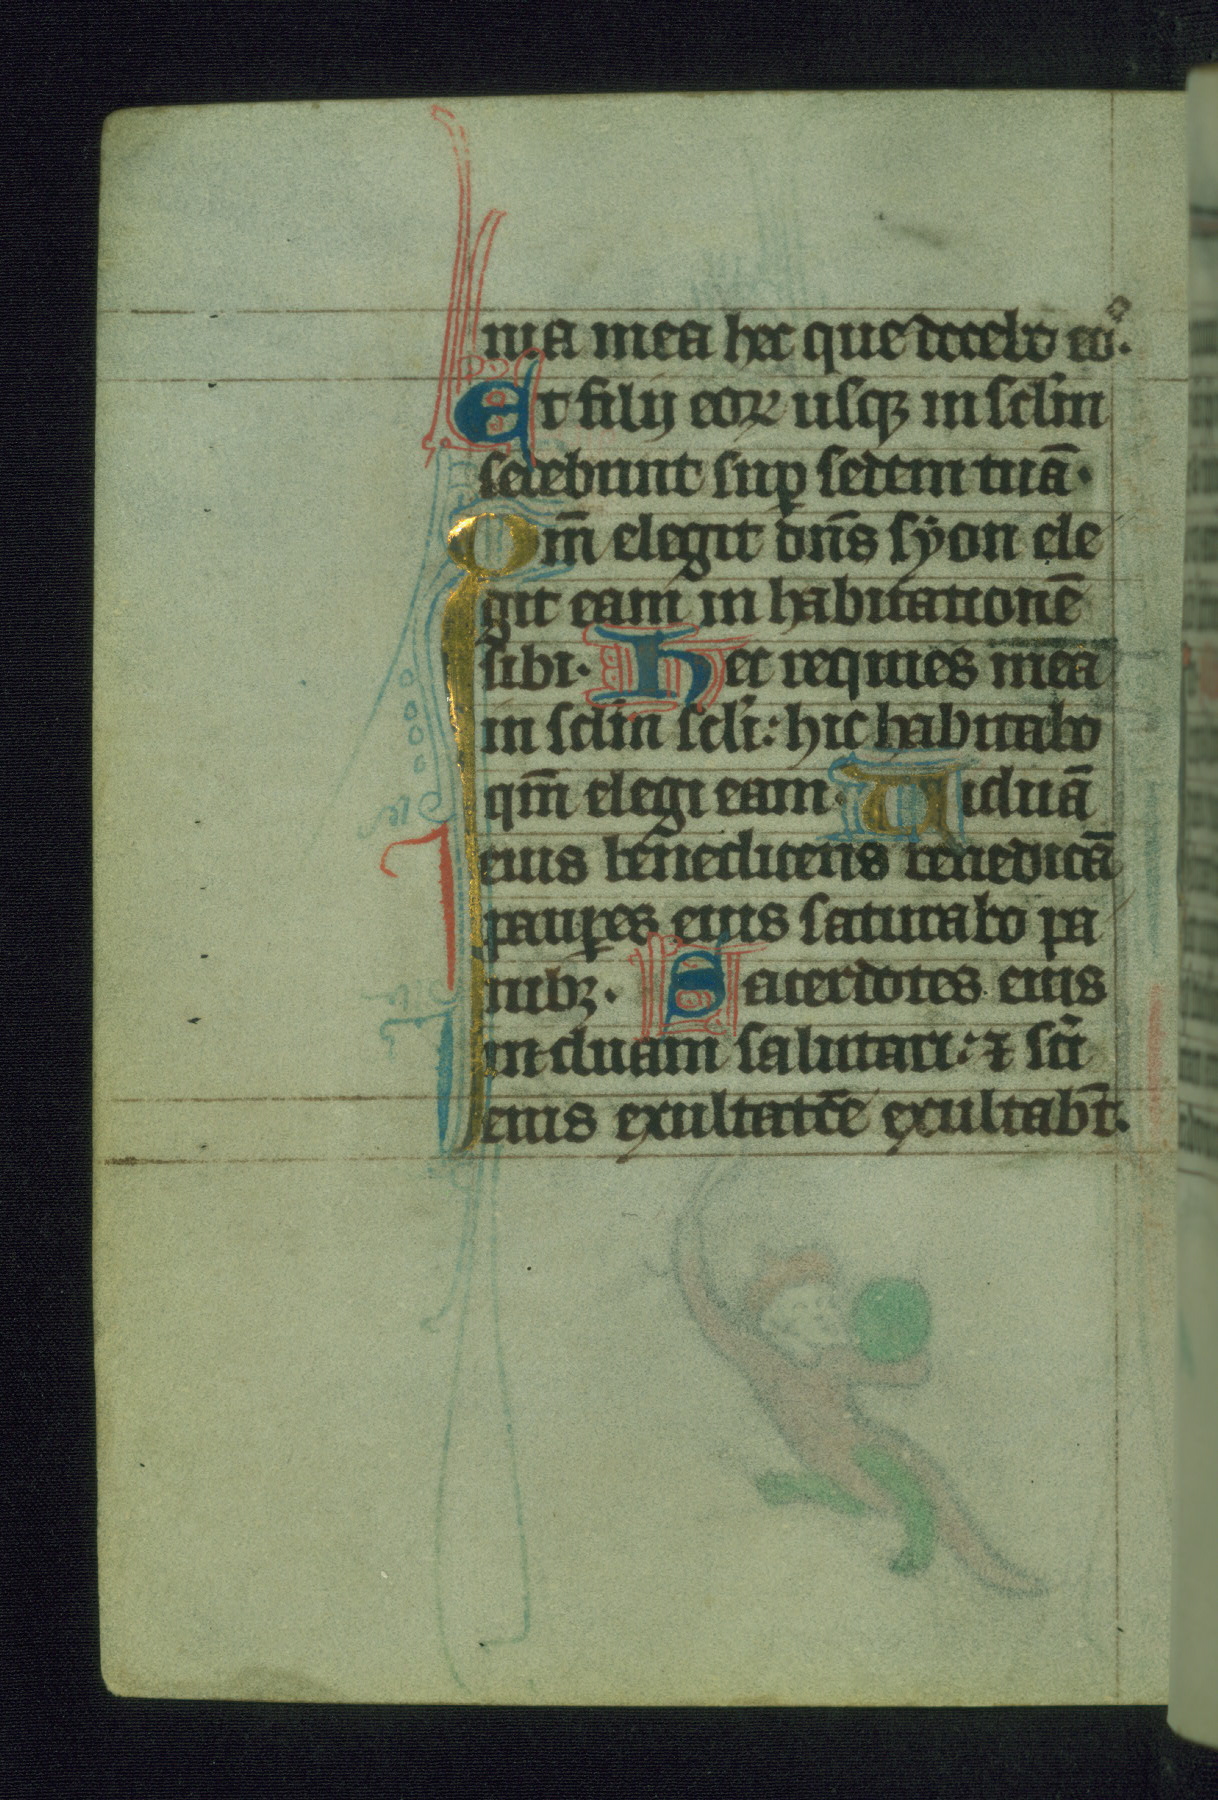 nia mea hec que docebo eoˢ.
Et filij eoꝝ usqꝫ in sclm̄
sedebunt sup̱ sedem tuā.
Qm̄ elegit dn̄s sẏon ele
git eam in habitationē
sibi. Hec requies mea
in sclm̄ scli̅: hic habitabo
qm̄ elegi eam. Uiduā
eius benedicens benedicā
pauꝑes eius saturabo pa
nibꝫ. Sacerdotes eius
induam salutari: ⁊ sc̄i
eius exultatōe exultabn̄t.